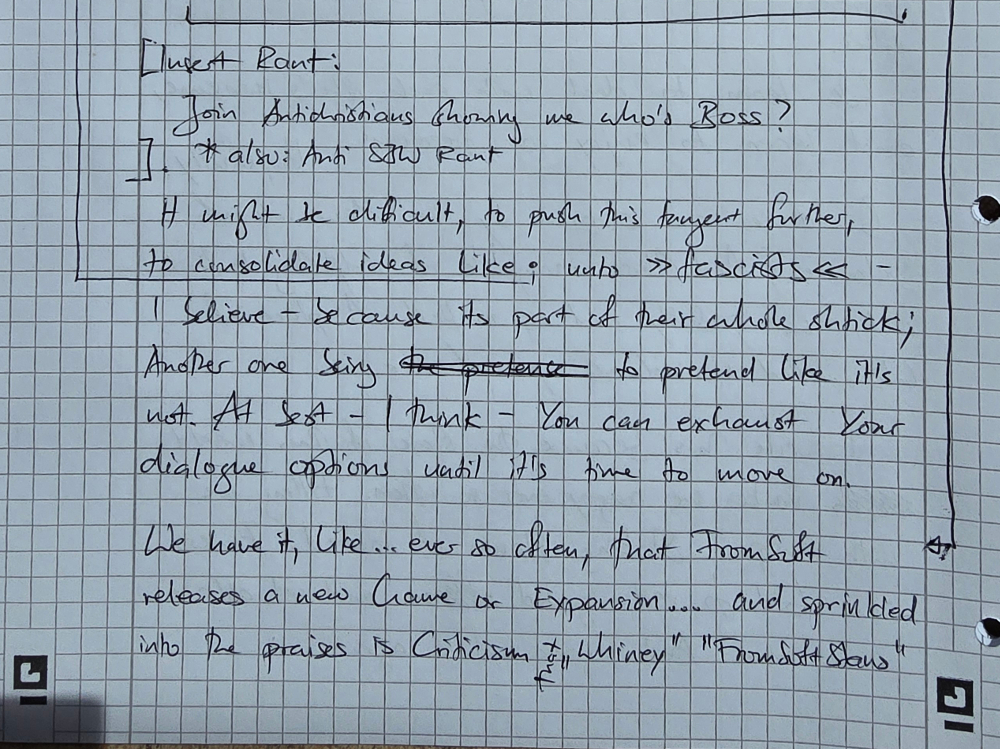 [Insert Rant:
Join Antichristians showing me who's Boss?
]. * also: Anti SJW Rant
It might be difficult, to push this tangent further,
to consolidate ideas like; unto »fascists« -
I believe - because its part of their whole shtick;
Another one being the pretence to pretend like it's
not. At best - I think - You can exhaust Your
dialogue options until it's time to move on.
We have it, like... ever so often, that FromSoft
releases a new Game or Expansion... and sprinkled
into the praises is Criticism „Whiney" "FromSoft Stans"